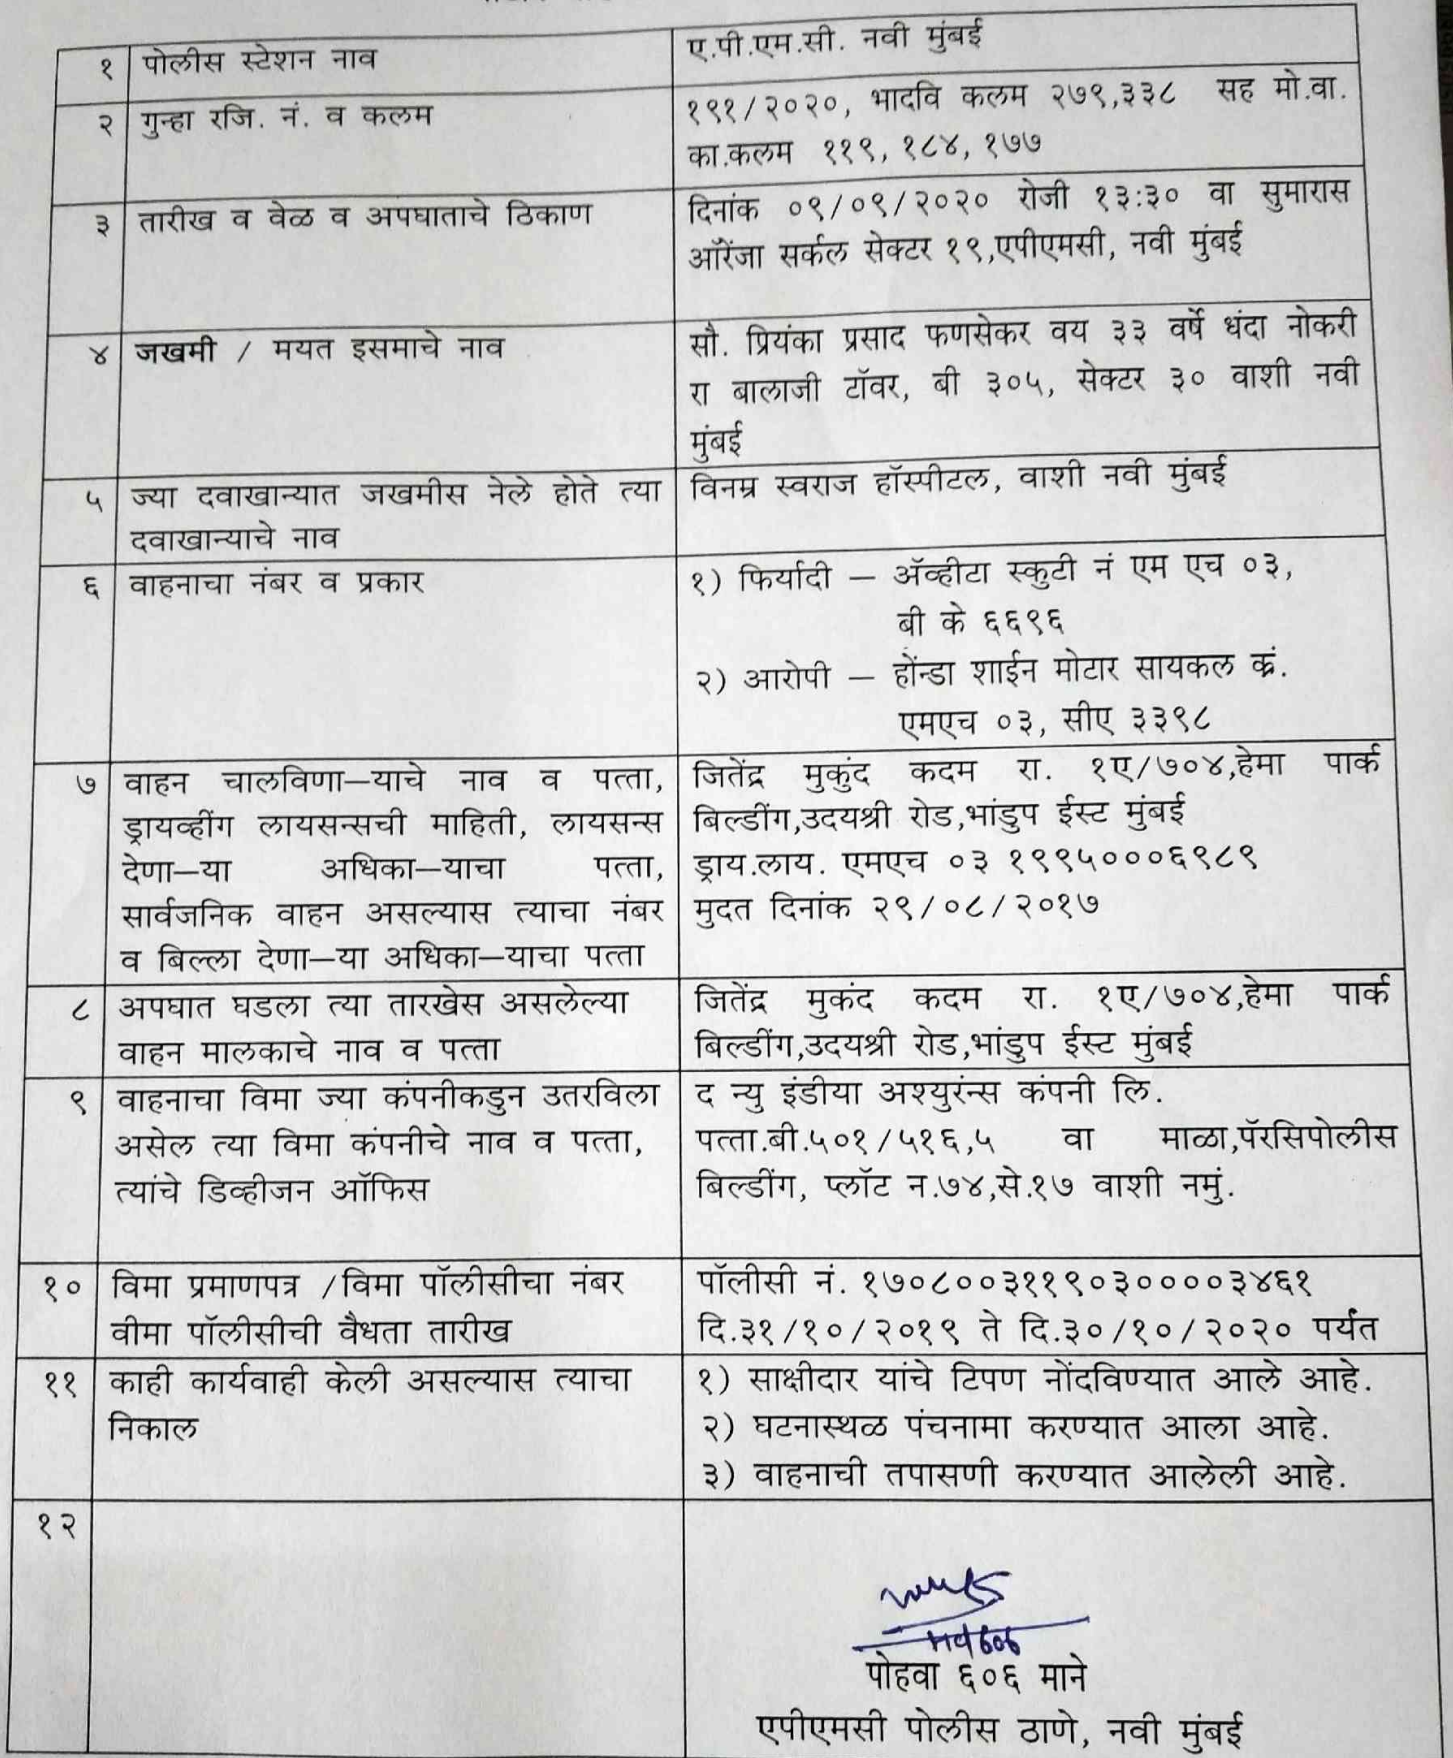 १ पोलीस स्टेशन नाव
ए.पी.एम.सी. नवी मुंबई
२ गुन्हा रजि. नं. व कलम
१९१/२०२०, भादवि कलम २७९,३३८ सह मो.वा.
का.कलम ११९, १८४, १७७
३ तारीख व वेळ व अपघाताचे ठिकाण
दिनांक ०९/०९/२०२० रोजी १३:३० वा सुमारास
ऑरेंजा सर्कल सेक्टर १९,एपीएमसी, नवी मुंबई
४ जखमी / मयत इसमाचे नाव
सौ. प्रियंका प्रसाद फणसेकर वय ३३ वर्षे धंदा नोकरी
रा बालाजी टॉवर, बी ३०५, सेक्टर ३० वाशी नवी
मुंबई
५ ज्या दवाखान्यात जखमीस नेले होते त्या
दवाखान्याचे नाव
विनम्र स्वराज हॉस्पीटल, वाशी नवी मुंबई
६ वाहनाचा नंबर व प्रकार
१) फिर्यादी – ॲव्हीटा स्कुटी नं एम एच ०३,
बी के ६६९६
२) आरोपी – होंन्डा शाईन मोटार सायकल क्रं.
एमएच ०३, सीए ३३९८
७ वाहन चालविणा–याचे नाव व पत्ता,
ड्रायव्हींग लायसन्सची माहिती, लायसन्स
देणा–या अधिका–याचा पत्ता,
सार्वजनिक वाहन असल्यास त्याचा नंबर
व बिल्ला देणा–या अधिका–याचा पत्ता
जितेंद्र मुकुंद कदम रा. १ए/७०४,हेमा पार्क
बिल्डींग,उदयश्री रोड,भांडुप ईस्ट मुंबई
ड्राय.लाय. एमएच ०३ १९९५०००६९८९
मुदत दिनांक २९/०८/२०१७
८ अपघात घडला त्या तारखेस असलेल्या
वाहन मालकाचे नाव व पत्ता
जितेंद्र मुकंद कदम रा. १ए/७०४,हेमा पार्क
बिल्डींग,उदयश्री रोड,भांडुप ईस्ट मुंबई
९ वाहनाचा विमा ज्या कंपनीकडुन उतरविला
असेल त्या विमा कंपनीचे नाव व पत्ता,
त्यांचे डिव्हीजन ऑफिस
द न्यु इंडीया अश्युरंन्स कंपनी लि.
पत्ता.बी.५०१/५१६,५ वा माळा,पॅरसिपोलीस
बिल्डींग, प्लॉट न.७४,से.१७ वाशी नमुं.
१० विमा प्रमाणपत्र /विमा पॉलीसीचा नंबर
वीमा पॉलीसीची वैधता तारीख
पॉलीसी नं. १७०८००३११९०३००००३४६१
दि.३१/१०/२०१९ ते दि.३०/१०/२०२० पर्यंत
११ काही कार्यवाही केली असल्यास त्याचा
निकाल
१) साक्षीदार यांचे टिपण नोंदविण्यात आले आहे.
२) घटनास्थळ पंचनामा करण्यात आला आहे.
३) वाहनाची तपासणी करण्यात आलेली आहे.
१२
पोहवा ६०६ माने
एपीएमसी पोलीस ठाणे, नवी मुंबई